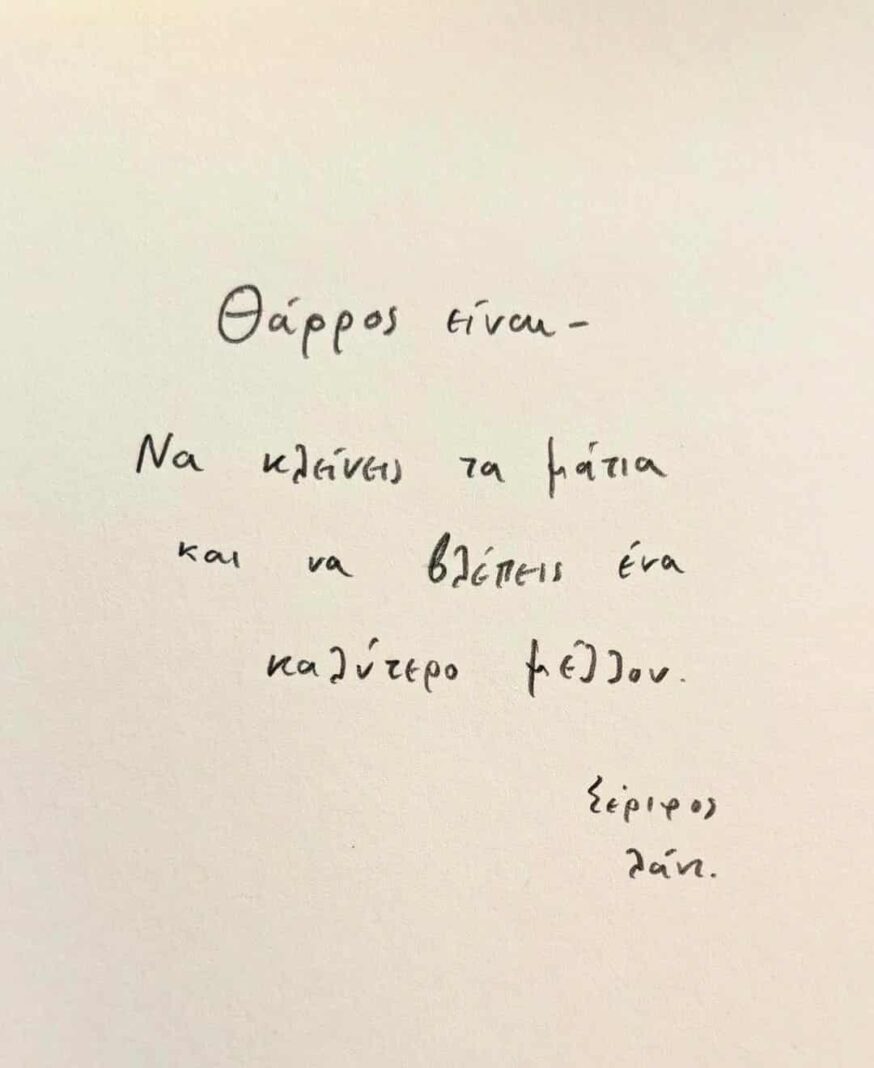 Θάρρος είναι -
Να κλείνεις τα μάτια
και να βλέπεις ένα
καλύτερο μέλλον.
Σέριφος
λάντ.